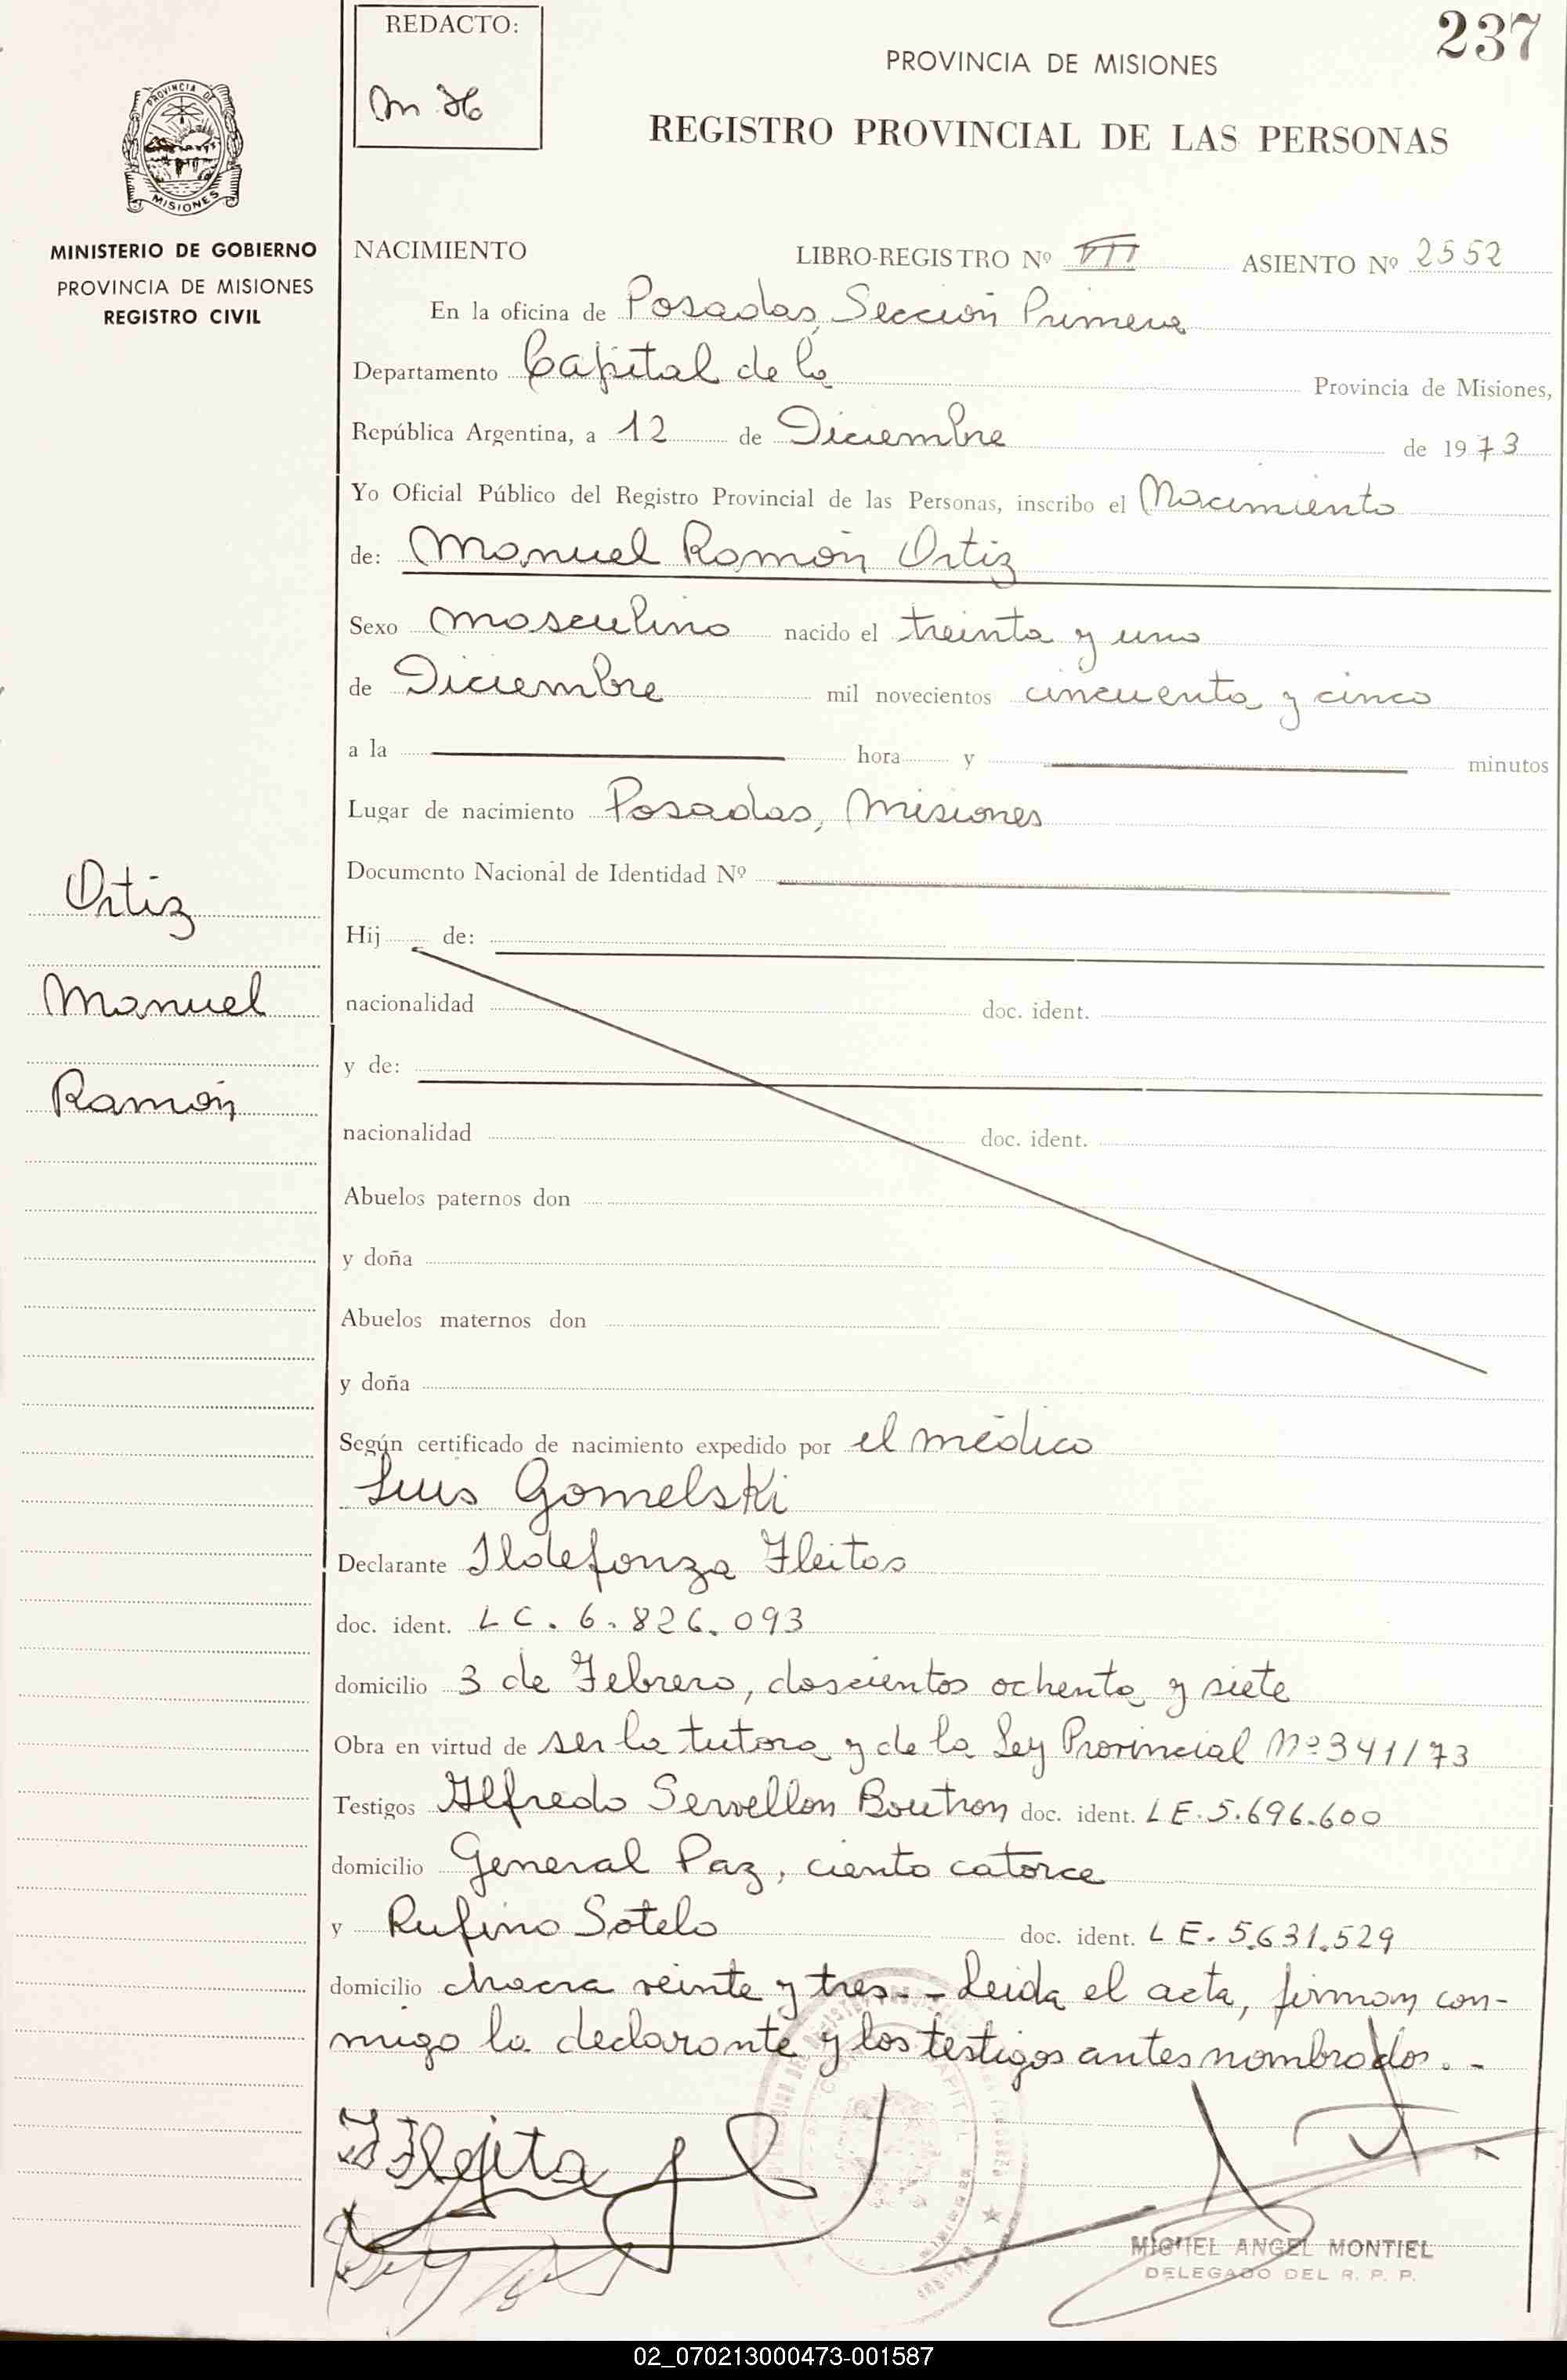 237
REDACTO:
M H
PROVINCIA DE MISIONES
REGISTRO PROVINCIAL DE LAS PERSONAS
PROVINCIA DE
MISIONES
MINISTERIO DE GOBIERNO
PROVINCIA DE MISIONES
REGISTRO CIVIL
NACIMIENTO LIBRO-REGISTRO Nº VII ASIENTO Nº 2552
En la oficina de Posadas, Sección Primera
Departamento Capital de la Provincia de Misiones,
República Argentina, a 12 de Diciembre de 1973
Yo Oficial Público del Registro Provincial de las Personas, inscribo el Nacimiento
de: Manuel Ramón Ortiz
Sexo masculino nacido el treinta y uno
de Diciembre mil novecientos cincuenta y cinco
a la hora y minutos
Lugar de nacimiento Posadas, Misiones
Documento Nacional de Identidad Nº
Ortiz
Manuel
Ramón
Hij de:
nacionalidad doc. ident.
y de:
nacionalidad doc. ident.
Abuelos paternos don
y doña
Abuelos maternos don
y doña
Según certificado de nacimiento expedido por el médico
Luis Gomelski
Declarante Ildefonza Fleitas
doc. ident. LC. 6.826.093
domicilio 3 de Febrero, doscientos ochenta y siete
Obra en virtud de ser la tutora y de la Ley Provincial Nº 341/73
Testigos Alfredo Servellon Boutron doc. ident. LE. 5.696.600
domicilio General Paz, ciento catorce
y Rufino Sotelo doc. ident. LE. 5.631.529
domicilio chacra veinte y tres.-- Leida el acta, firman con-
migo la declarante y los testigos antes nombrados.-
MIGUEL ANGEL MONTIEL
DELEGADO DEL R. P. P.
02_070213000473-001587